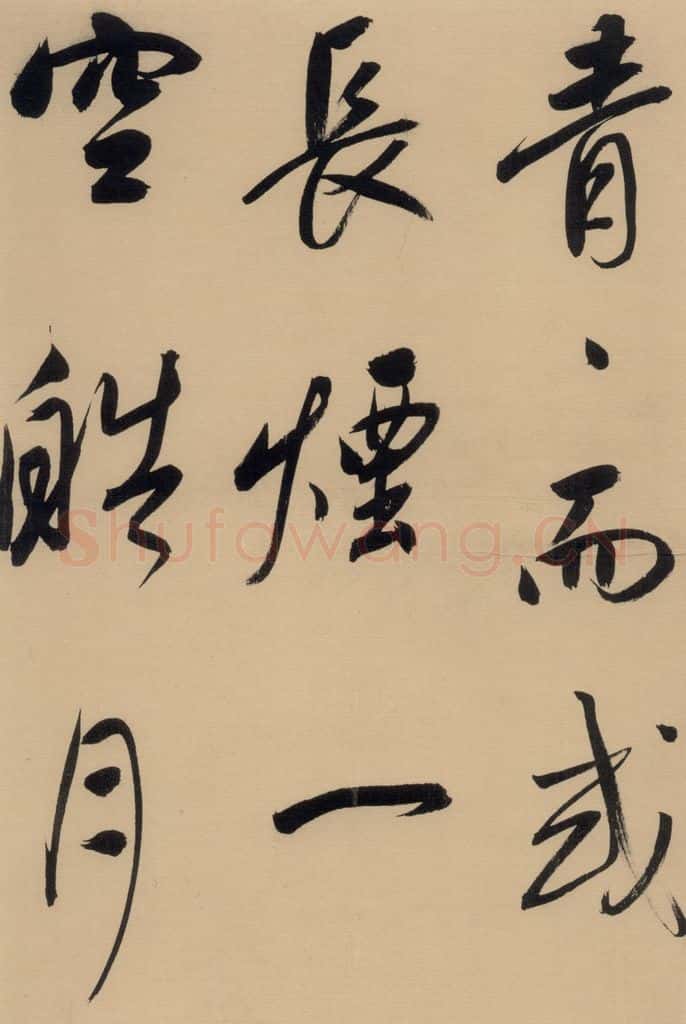 青々而或
長煙一
空皓月
Shufawang.CN